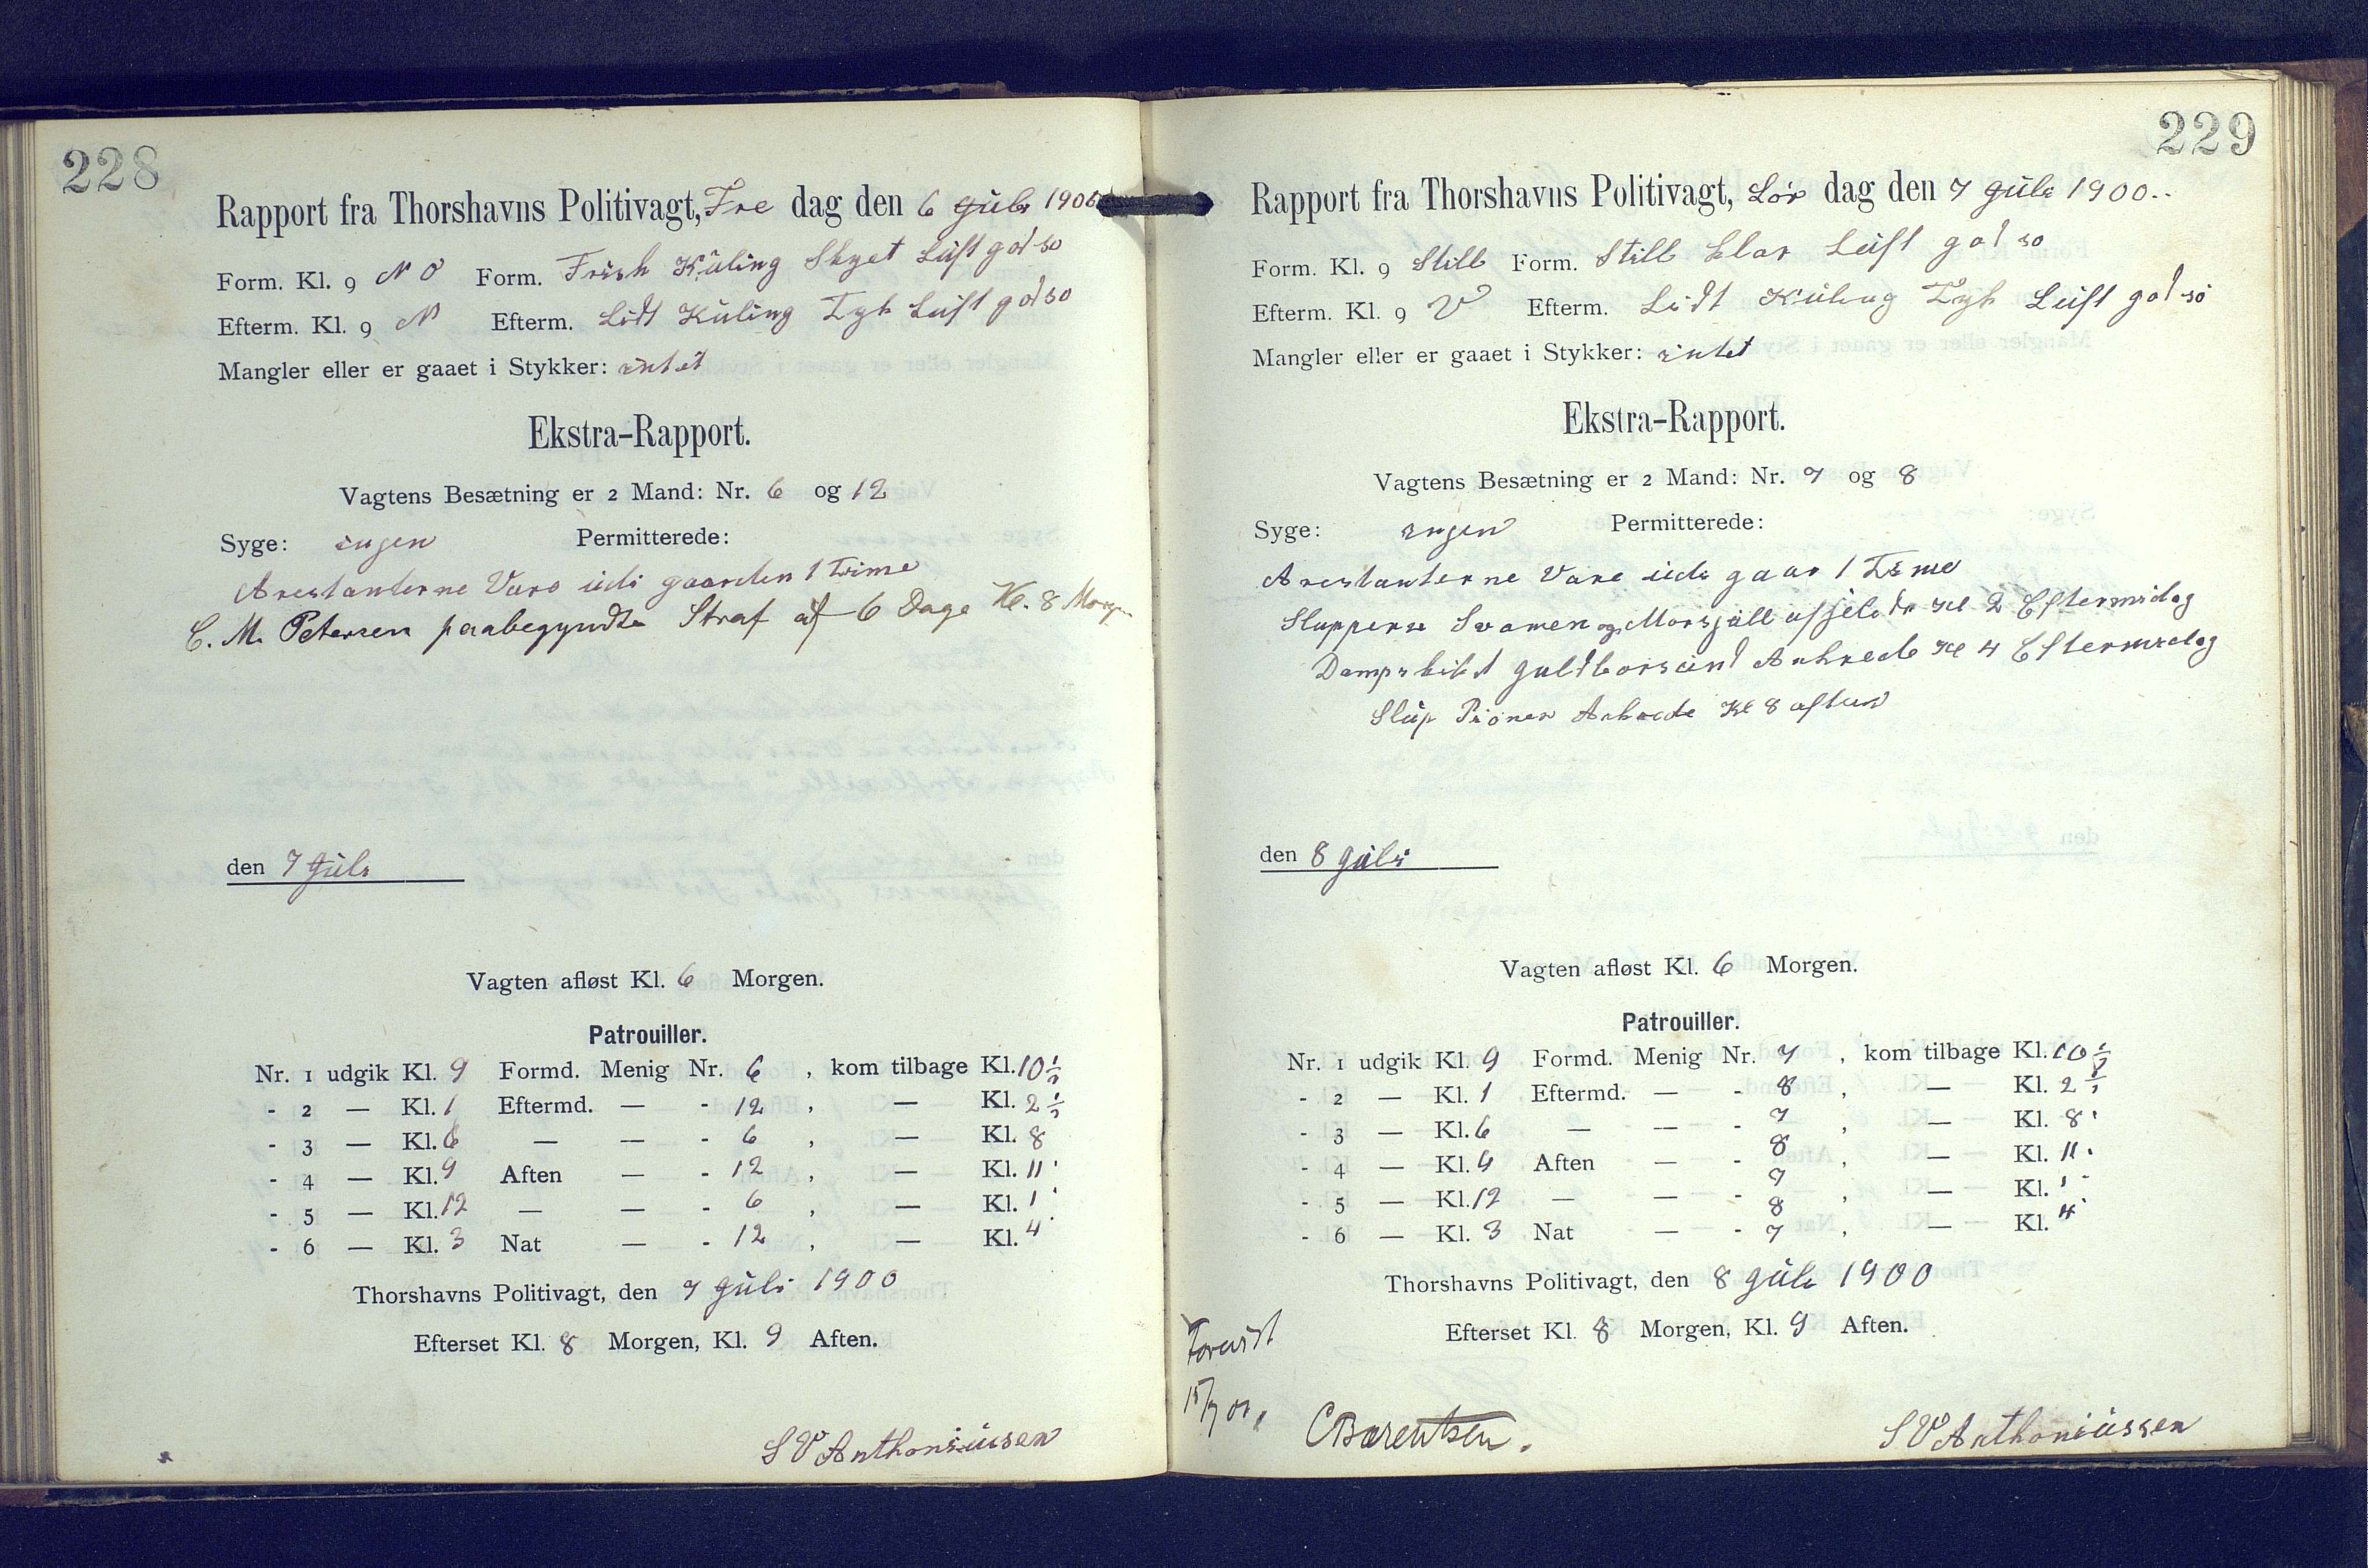 228
Rapport fra Thorshavns Politivagt, Fre dag den 6 Juli 1900
Form. Kl. 9 N O Form. Frisk Küling Skyet Lüft god sø
Efterm. Kl. 9 N Efterm. Lidt Küling Tyk Lüft god sø
Mangler eller er gaaet i Stykker: intet
Ekstra-Rapport.
Vagtens Besætning er 2 Mand: Nr. 6 og 12
Syge: ingen Permitterede:
Arestanterne Vare üdi gaarden 1 Time
C. M. Petersen paabegyndte Straf af 6 Dage Kl. 8 Morgen
den 7 Jüli
Vagten afløst Kl. 6 Morgen.
Patrouiller.
Nr. 1 udgik Kl. 9 Formd. Menig Nr. 6 , kom tilbage Kl. 10 ½
- 2 — Kl. 1 Eftermd. — - 12 , — Kl. 2 ½
- 3 — Kl. 6 — — - 6 , — Kl. 8
- 4 — Kl. 9 Aften — - 12 , — Kl. 11
- 5 — Kl. 12 — — - 6 , — Kl. 1
- 6 — Kl. 3 Nat — - 12 , — Kl. 4
Thorshavns Politivagt, den 7 Jüli 1900
Efterset Kl. 8 Morgen, Kl. 9 Aften.
S V Anthoniüsen
229
Rapport fra Thorshavns Politivagt, Lör dag den 7 Jüli 1900..
Form. Kl. 9 Still Form. Still klar Lüft god sø
Efterm. Kl. 9 V Efterm. Lidt Küling Tyk Lüft god sø
Mangler eller er gaaet i Stykker: intet
Ekstra-Rapport.
Vagtens Besætning er 2 Mand: Nr. 7 og 8
Syge: ingen Permitterede:
Arestanterne Vare üdi gaar 1 Time
Slupperne Svamen og Morsjüll afsjelede Kl 2 Eftermidag
Dampskibet Guldborsünd Ankrede Kl 4 Eftermidag
Slüp Pioner Ankrede Kl 8 aften
den 8 Jüli
Vagten afløst Kl. 6 Morgen.
Patrouiller.
Nr. 1 udgik Kl. 9 Formd. Menig Nr. 7 , kom tilbage Kl. 10 ½
- 2 — Kl. 1 Eftermd. — - 8 , — Kl. 2 ½
- 3 — Kl. 6 — — - 7 , — Kl. 8
- 4 — Kl. 9 Aften — - 8 , — Kl. 11
7
- 5 — Kl. 12 — — - 8 , — Kl. 1
- 6 — Kl. 3 Nat — - 7 , — Kl. 4
Thorshavns Politivagt, den 8 Jüli 1900
Efterset Kl. 8 Morgen, Kl. 9 Aften.
Forevist
15/7 00.
CBærentsen.
S V Anthoniüssen